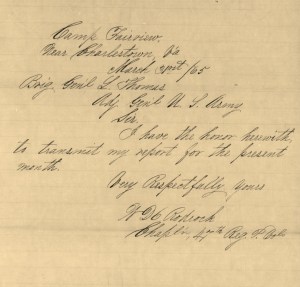 Camp Fairview,
Near Charlestown, Va
March 31st /65
Brig. Genl L Thomas
Adj Genl U S Army
Sir.
I have the honor herewith
to transmit my report for the present
month.
Very Respectfully yours
W D C Rodrock
Chaplin 47th Reg P. Vols